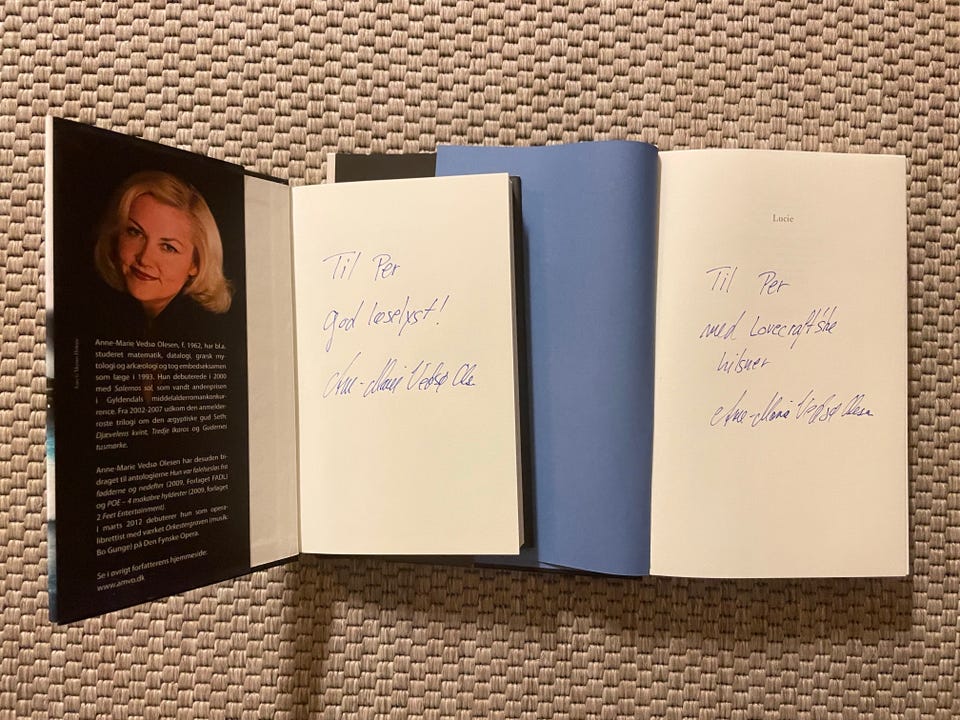 Anne-Marie Vedsø Olesen, f. 1962, har bl.a.
studeret matematik, datalogi, græsk my-
tologi og arkæologi og tog embedseksamen
som læge i 1993. Hun debuterede i 2000
med Salernos sol, som vandt andenprisen
i Gyldendals middelalderromankonkur-
rence. Fra 2002-2007 udkom den anmelder-
roste trilogi om den ægyptiske gud Seth;
Djævelens kvint, Tredje Ikaros og Gudernes
tusmørke.
Anne-Marie Vedsø Olesen har desuden bi-
draget til antologierne Hun var følelsesløs fra
fødderne og nedefter (2009, Forlaget FADL)
og POE – 4 makabre hyldester (2009, forlaget
2 Feet Entertainment).
I marts 2012 debuterer hun som opera-
librettist med værket Orkestergraven (musik:
Bo Gunge) på Den Fynske Opera.
Se i øvrigt forfatterens hjemmeside:
www.amvo.dk
Til Per
god læselyst!
Anne-Marie Vedsø Olesen
Lucie
Til Per
med Lovecraftske
hilsner
Anne-Marie Vedsø Olesen